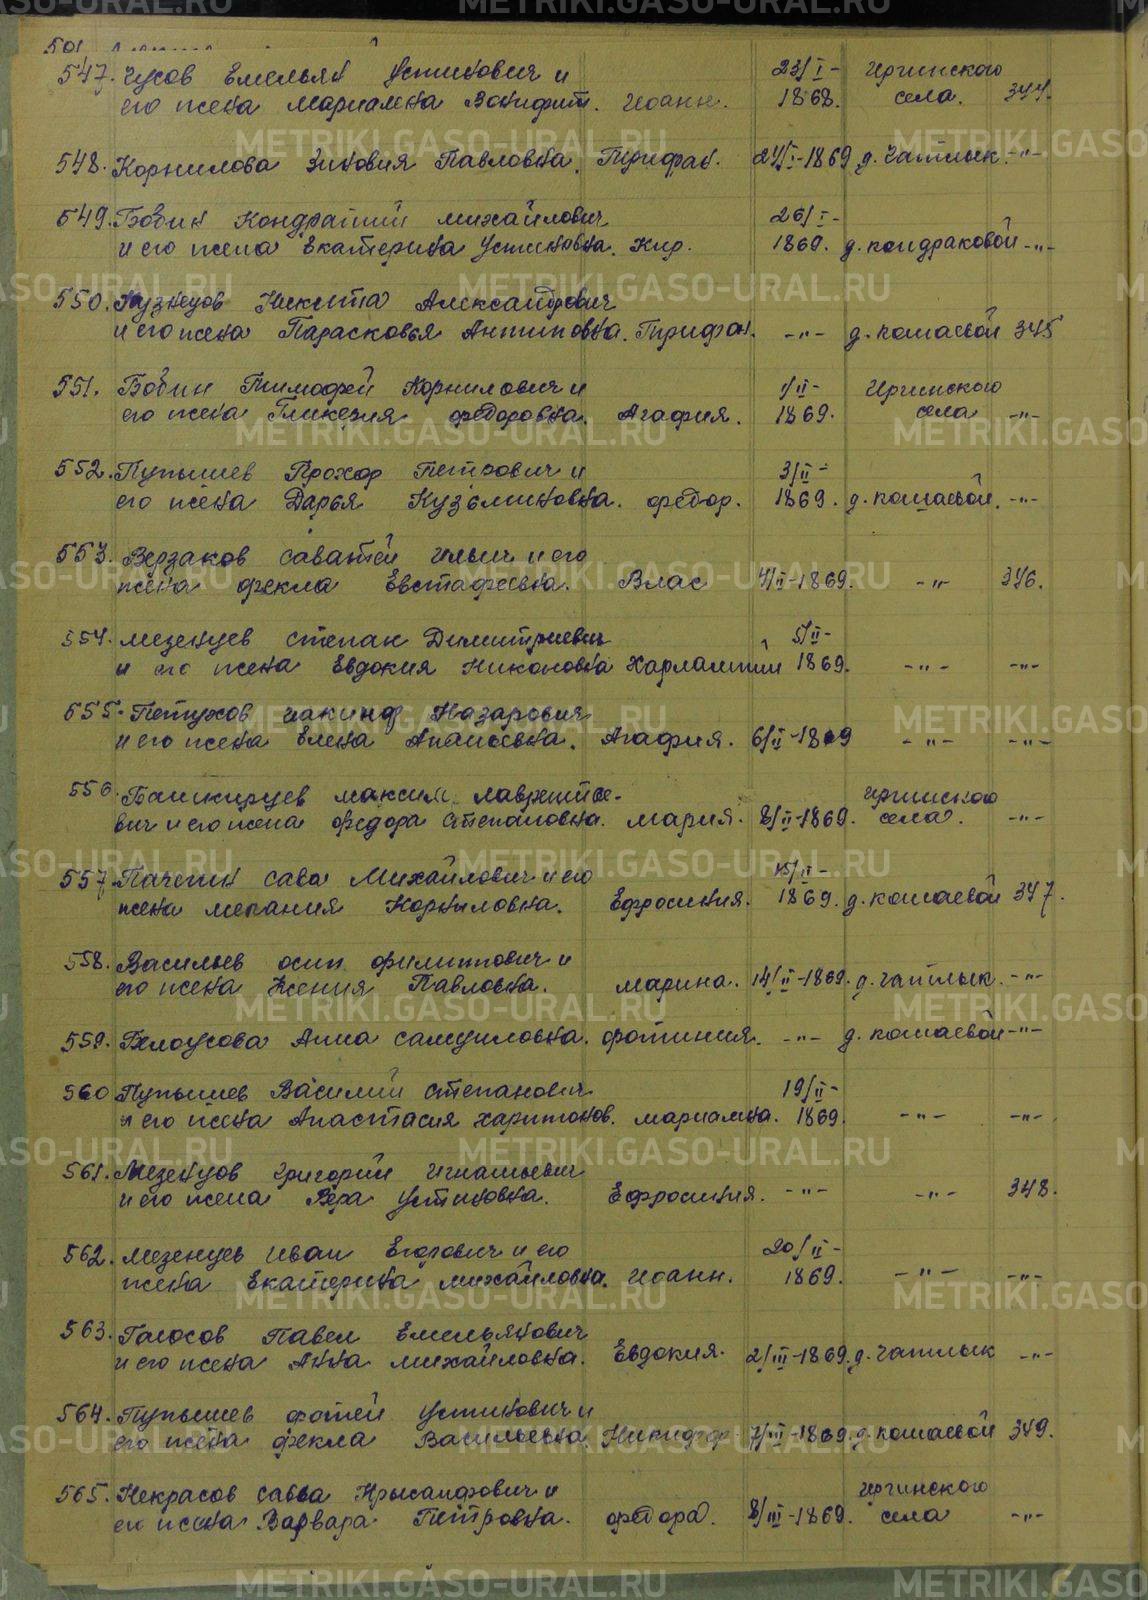 547. Чусов Емельян Устинович и 23/I- Иргинского
его жена Мариамена Вонифат. Иоанн. 1868. села. 344.
548. Корнилова Зиновия Павловна. Трифан. 24/I-1869 д. Чатлык. -"-
549. Бобин Кондратий Михайлович 26/I-
и его жена Екатерина Устиновна. Кир. 1869. д. Кондраковой -"-
550. Кузнецов Никита Александрович
и его жена Парасковья Антиповна. Трифан. -"- д. Кошаевой 345
551. Бобин Тимофей Корнилович и 1/II- Иргинского
его жена Гликерия Федоровна. Агафия. 1869. села -"-
552. Пупышев Прохор Петрович и 3/II-
его жена Дарья Кузьминовна. Федор. 1869. д. Кошаевой. -"-
553. Верзаков Саватей Ильич и его
жена Фекла Евстафеевна. Влас 4/II-1869. -"- 346.
554. Мезенцев Степан Димитриевич 5/II-
и его жена Евдокия Никоновна Харлампий 1869. -"- -"-
555. Петухов Иакинф Назарович
и его жена Елена Апаносвна. Агафия. 6/II-1869 -"- -"-
556. Башкирцев Максим Лаврентие- Иргинского
вич и его жена Федора Степановна. Мария. 8/II-1869. села. -"-
557. Пачепин Сава Михайлович и его 15/II-
жена Мелания Корниловна. Ефросиния. 1869. д. Кошаевой 347.
558. Васильев Осип Филиппович и
его жена Ксения Павловна. Марина. 14/II-1869. д. Чатлык. -"-
559. Белоусова Анна Самуиловна. Фотиния. -"- д. Кошаевой -"-
560 Пупышев Василий Степанович 19/II-
и его жена Анастасия Харитонов. Мариамна. 1869. -"- -"-
561. Мезенцов Григорий Игнатьевич
и его жена Вера Устиновна. Ефросиния. -"- -"- 348.
562. Мезенцев Иван Егорович и его 20/II-
жена Екатерина Михайловна. Иоанн. 1869. -"- -"-
563. Голосов Павел Емельянович
и его жена Анна Михайловна. Евдокия. 2/III-1869. д. Чатлык -"-
564. Пупышев Фотей Устинович и
его жена Фекла Васильевна. Никифор 7/III-1869. д. Кошаевой 349.
565. Некрасов Савва Крысанфович и Иргинского
его жена Варвара Петровна. Федора. 8/III-1869. села -"-
METRIKI.GASO-URAL.RU